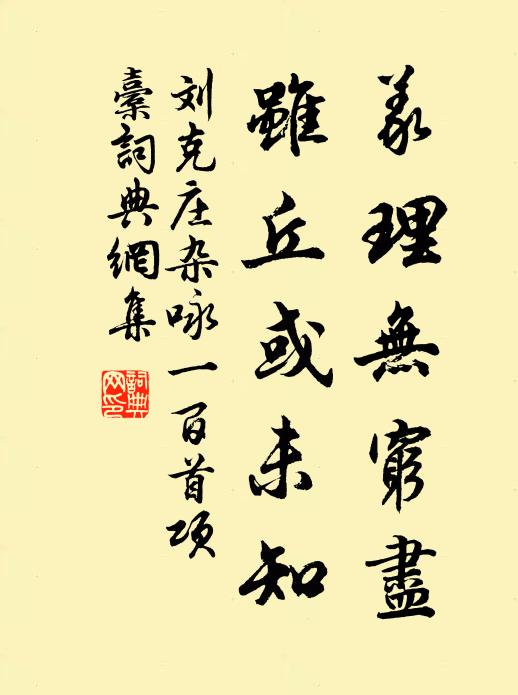 義理無窮盡
雖丘或未知
刘克庄杂咏一百首项
橐詞典網集
詞典
网印